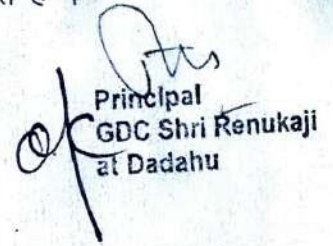 Principal
GDC Shri Renukaji
at Dadahu